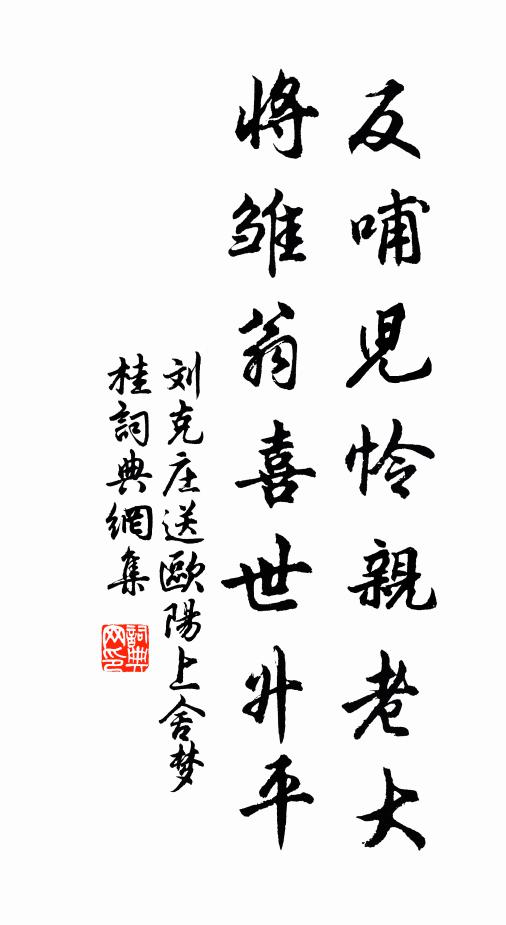 反哺児怜親老大
将雏翁喜世升平
刘克庄送歐陽上舍梦
桂詞典網集
詞典网印